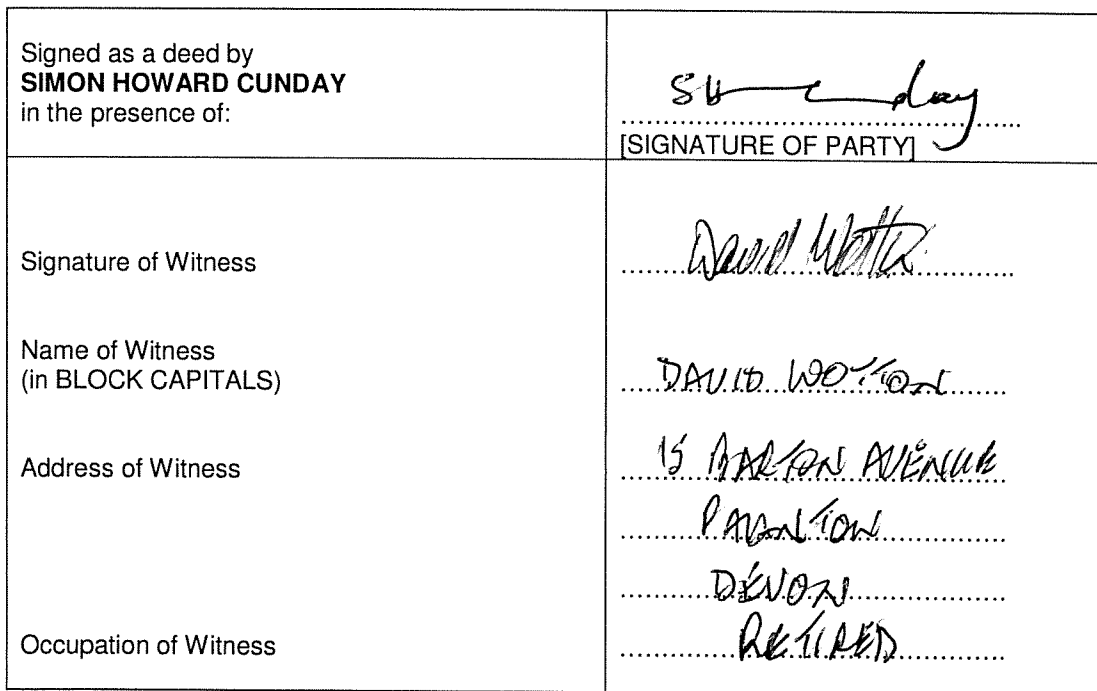 Signed as a deed by
SIMON HOWARD CUNDAY
in the presence of:
SH Cunday
[SIGNATURE OF PARTY]
Signature of Witness
David Wotton
Name of Witness
(in BLOCK CAPITALS)
DAVID WOTTON
Address of Witness
15 BARTON AVENUE
PAIGNTON
DEVON
Occupation of Witness
RETIRED